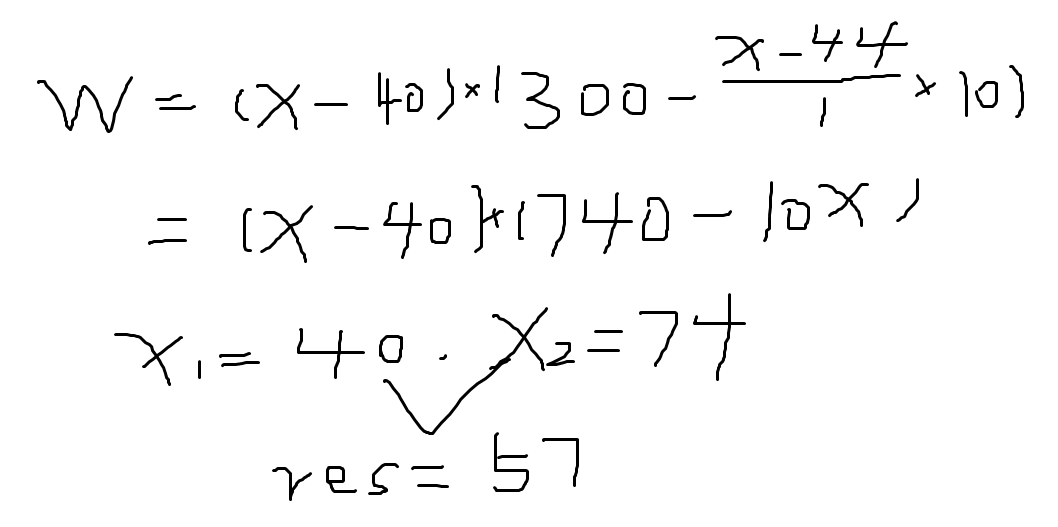 W = (x - 40) × (300 - \frac{x - 44}{1} × 10)
= (x - 40) × (740 - 10x)
x₁ = 40 . x₂ = 74
res = 57